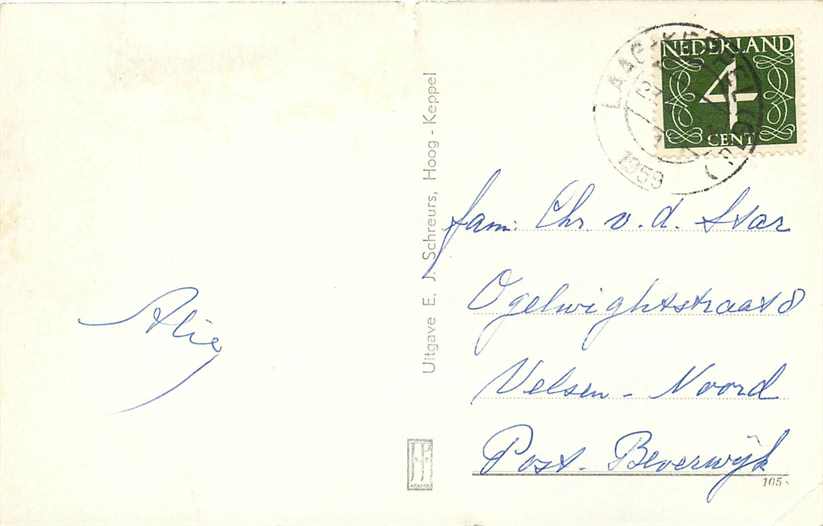 NEDERLAND
4
CENT
LAAG-KEPPEL
(GLD.)
1959
fam. Chr. v. d. Star
Ogelwightstraat 8
Velsen - Noord
Post. Beverwijk
Alie
Uitgave E. J. Schreurs, Hoog - Keppel
105